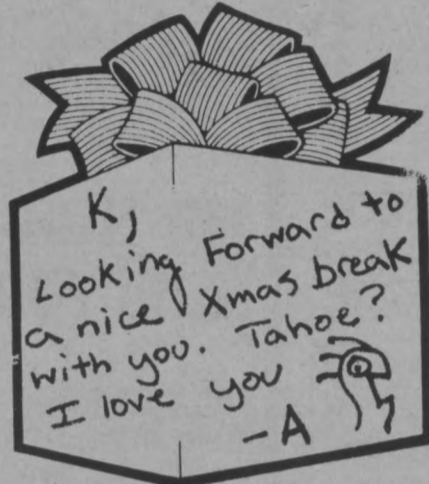 K,
Looking Forward to
a nice Xmas break
with you. Tahoe?
I love you
-A